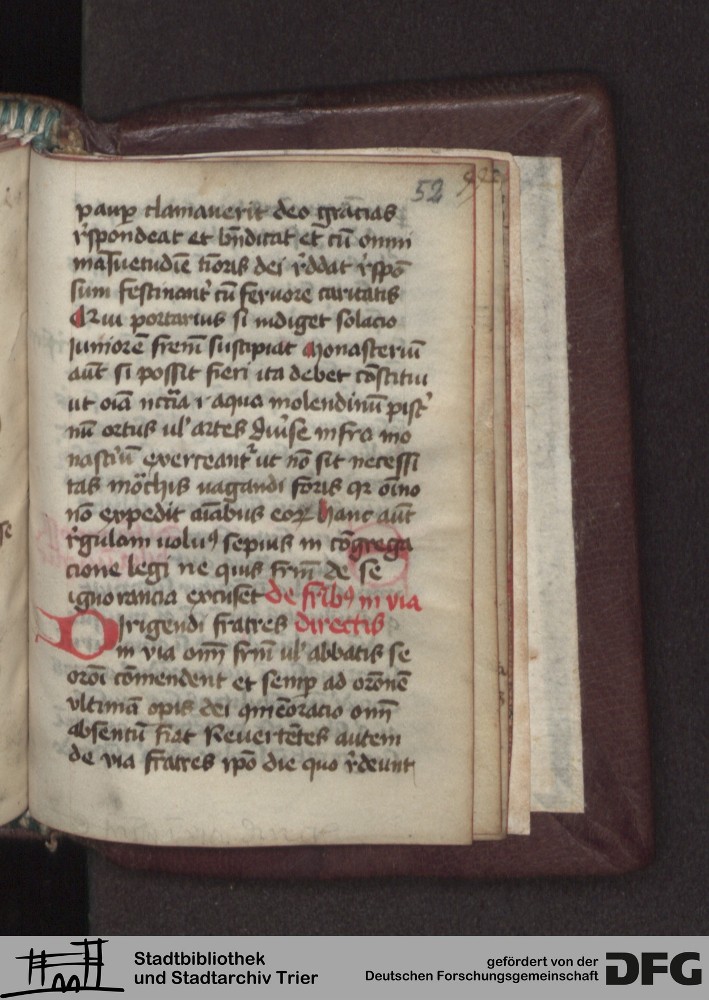 52
paup clamauerit deo gracias
rspondeat et bndicat et cu omni
masuetudie tioris dei rddat rspo
sum festinant cu feruore caritatis
Qui portarius si indiget solacio
juniore frem suscipiat Monasteriu
aut si possit fieri ita debet constitui
ut oia nccia i aqua molendinu pist
nu ortus ul artes diuse infra mo
nastiu exerceant ut no sit necessi
tas mochis uagandi foris qr oino
no expedit aiabus eor hanc aut
rgulam uolu9 sepius in cogrega
cione legi ne quis frm de se
ignorancia excuset de frib9 in via
Dirigendi fratres directis
in via om frm ul abbatis se
oroi comendent et semp ad orone
vltima opis dei comemoracio om
absentu fiat Reuertetes autem
de via fratres ipo die quo rdeunt
Stadtbibliothek
und Stadtarchiv Trier
gefördert von der
Deutschen Forschungsgemeinschaft
DFG